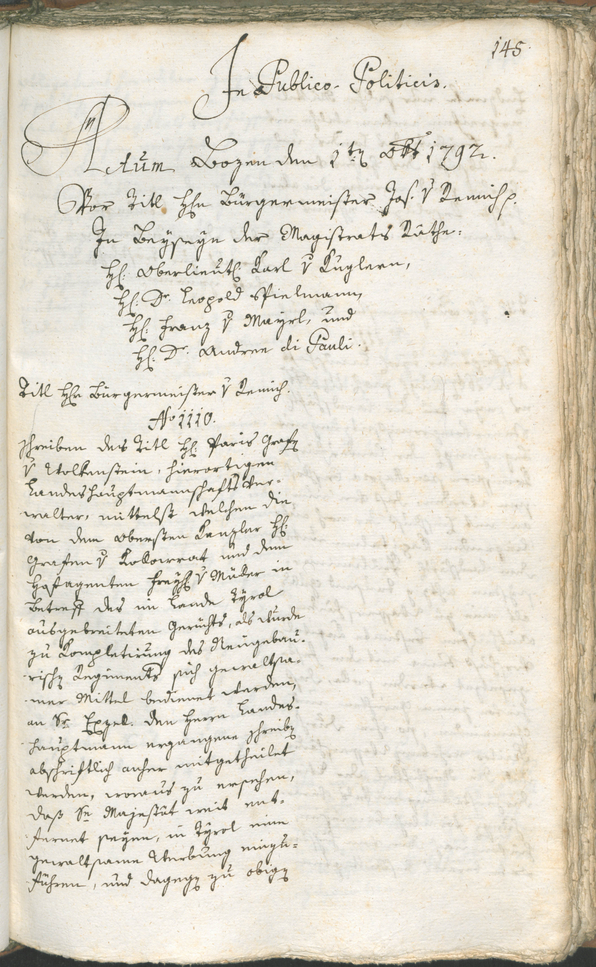 145.
In Publico-Politicis.
Actum Bozen den 1tn 8br 1792.
Vor Titl Hn Bürgermeister Jos. v Remich p.
In Beyseyn der Magistrats Räthe:
H: Oberlieut: Karl v Kuglern,
H: Dr Leopold Spielmann,
H: Franz v Mayrl, und
H: Dr. Andree di Pauli.
Titl Hn Bürgermeister v Remich.
No 1110.
Schreiben des Titl H: Paris Grafn
v Wolkenstein, hierortigen
Landeshauptmannschafts Ver-
walter, mittelst welchen die
von dem obersten Kanzler H:
Grafen v Kolowrat und dem
Hofagenten Freyh: v Müller in
Betreff des im Lande Tyrol
ausgebreiteten Gerüchts, als wurde
zu Kompletirung des Neugebau-
rischn Regiments sich gewaltsa-
mer Mittel bedienet werden,
an Sr Exzel. den Herrn Landes-
hauptmann ergangene schreibn
abschriftlich anher mitgetheilet
werden, woraus zu ersehen,
daß Sr Majestät weit ent-
fernet seyen, in Tyrol eine
gewaltsame Werbung einzu-
führen, und dagegn zu obign